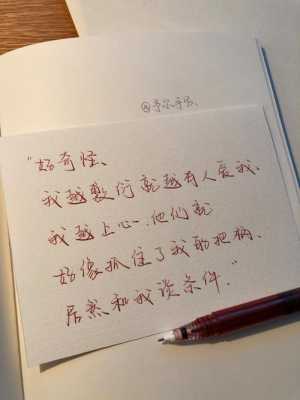 “好奇怪、
我越敷衍就越有人爱我、
我越上心、他们就
好像抓住了我的把柄、
居然和我谈条件.”